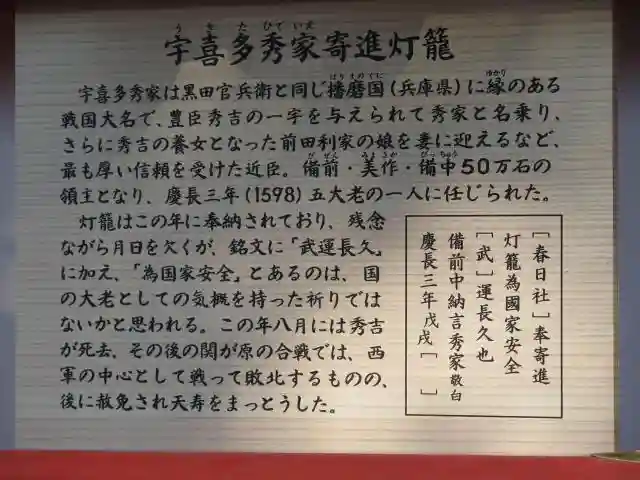 宇喜多秀家寄進灯籠
うきたひでいえ
宇喜多秀家は黒田官兵衛と同じ播磨国(兵庫県)に縁のある
はりまのくに
ゆかり
戦国大名で、豊臣秀吉の一字を与えられて秀家と名乗り、
さらに秀吉の養女となった前田利家の娘を妻に迎えるなど、
最も厚い信頼を受けた近臣。備前・美作・備中50万石の
びぜん
みまさか
びっちゅう
領主となり、慶長三年(1598)五大老の一人に任じられた。
灯籠はこの年に奉納されており、残念
ながら月日を欠くが、銘文に「武運長久」
に加え、「為国家安全」とあるのは、国
の大老としての気概を持った祈りでは
ないかと思われる。この年八月には秀吉
が死去、その後の関が原の合戦では、西
軍の中心として戦って敗北するものの、
後に赦免され天寿をまっとうした。
[春日社]奉寄進
灯籠為國家安全
[武]運長久也
備前中納言秀家敬白
慶長三年戊戌[ ]